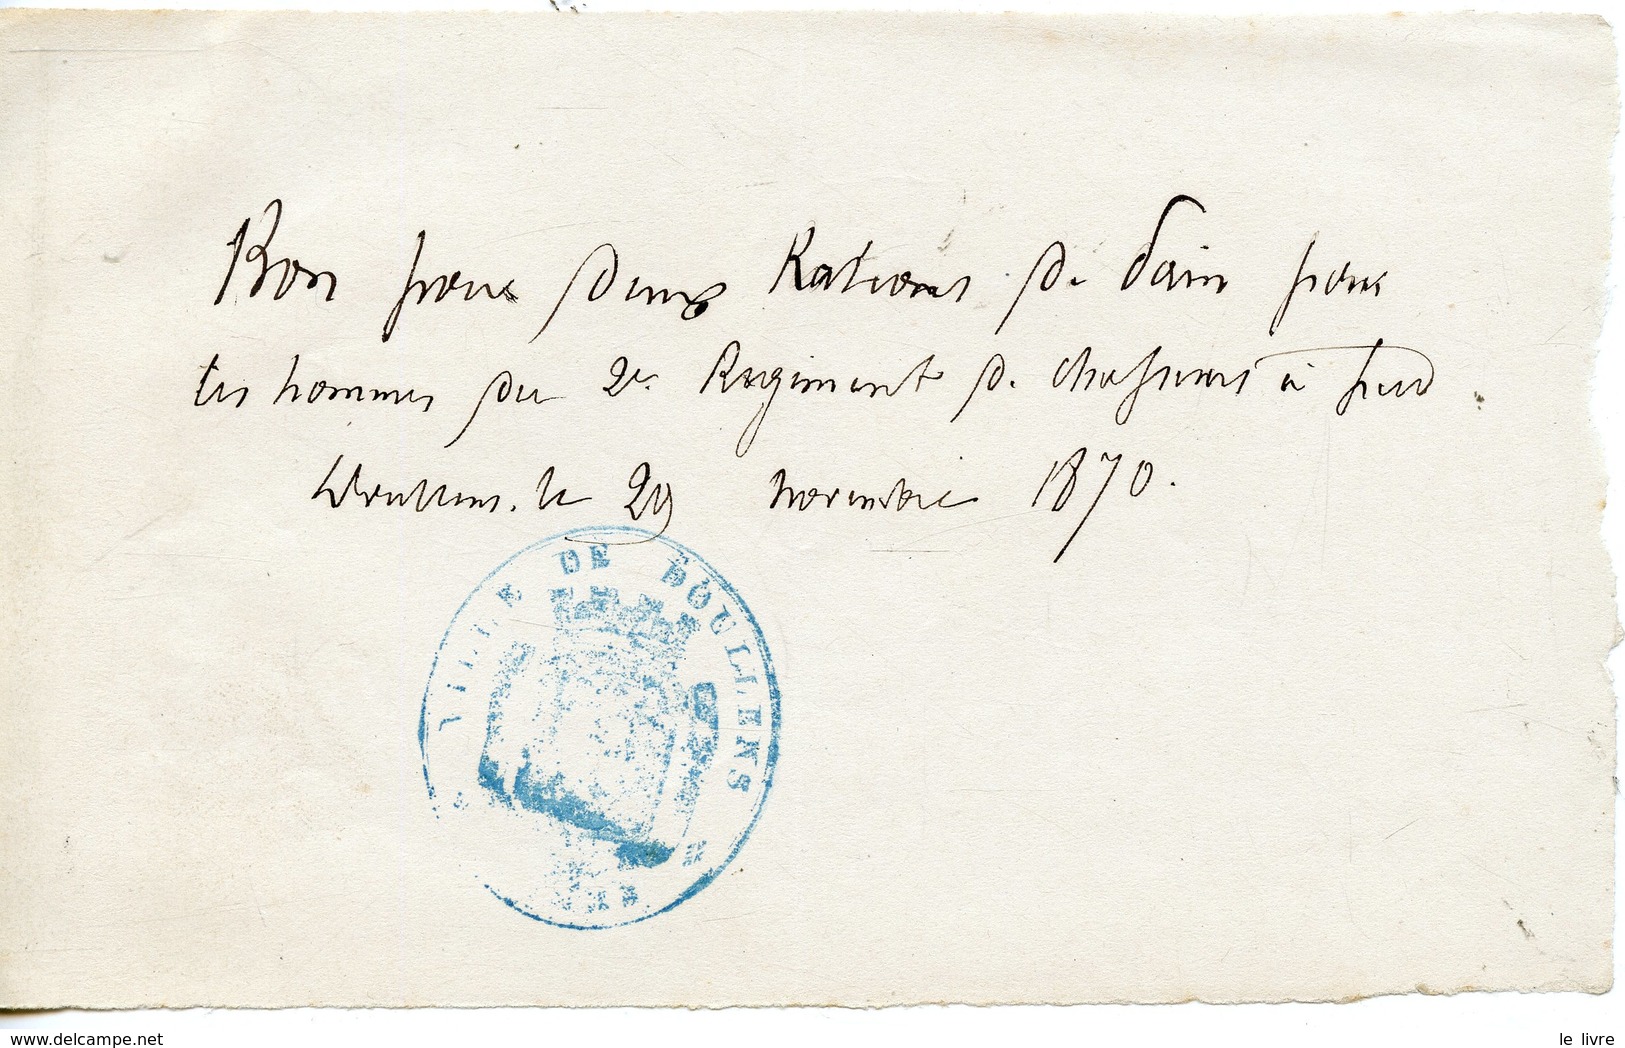 Bon pour deux Rations de Pain pour
les hommes du 2e Regiment de chasseurs à pied.
Doullens, le 29 novembre 1870.
VILLE DE DOULLENS
www.delcampe.net
le livre